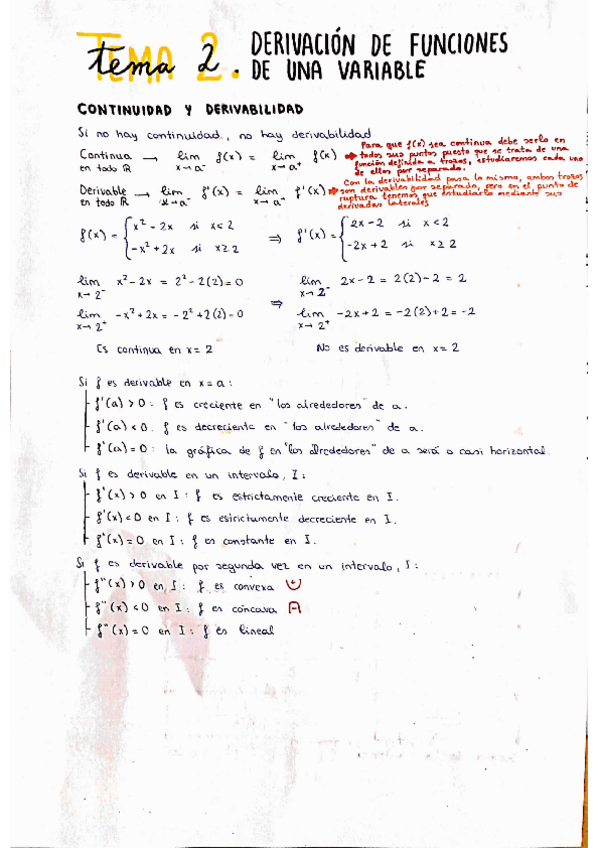 Tema 2. DERIVACIÓN DE FUNCIONES
DE UNA VARIABLE
CONTINUIDAD Y DERIVABILIDAD
Si no hay continuidad, no hay derivabilidad
Continua → lim f(x) = lim f(x)
en todo ℝ x→a⁻ x→a⁺
Para que f(x) sea continua debe serlo en
todos sus puntos puesto que se trata de una
función definida a trozos, estudiaremos cada uno
de ellos por separado.
Derivable → lim f'(x) = lim f'(x)
en todo ℝ x→a⁻ x→a⁺
Con la derivabilidad pasa lo mismo, ambos trozos
son derivables por separado, pero en el punto de
ruptura tenemos que estudiarlo mediante sus
derivadas laterales
f(x) = { x² - 2x si x < 2 ⇒ f'(x) = { 2x - 2 si x < 2
-x² + 2x si x ≥ 2 -2x + 2 si x ≥ 2
lim x² - 2x = 2² - 2(2) = 0 lim 2x - 2 = 2(2) - 2 = 2
x→2⁻ ⇒ x→2⁻
lim -x² + 2x = -2² + 2(2) = 0 lim -2x + 2 = -2(2) + 2 = -2
x→2⁺ x→2⁺
Es continua en x = 2 No es derivable en x = 2
Si f es derivable en x = a:
f'(a) > 0: f es creciente en "los alrededores" de a.
f'(a) < 0. f es decreciente en "los alrededores" de a.
f'(a) = 0: la gráfica de f en "los alrededores" de a será o casi horizontal.
Si f es derivable en un intervalo, I:
f'(x) > 0 en I: f es estrictamente creciente en I.
f'(x) < 0 en I: f es estrictamente decreciente en I.
f'(x) = 0 en I: f es constante en I.
Si f es derivable por segunda vez en un intervalo, I:
f''(x) > 0 en I: f es convexa
f''(x) < 0 en I: f es cóncava
f''(x) = 0 en I: f es lineal